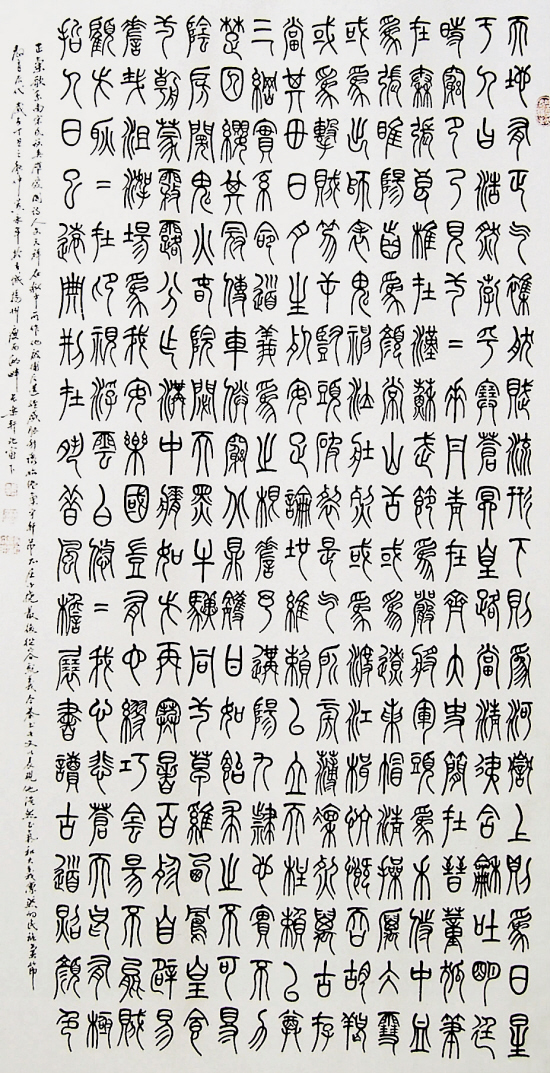 天地有正氣雜然賦流形下則為河嶽上則為日星
于人曰浩然沛乎塞蒼冥皇路當清夷含龢吐明廷
時窮節乃見一二垂丹青在齊太史簡在晉董狐筆
在秦張良椎在漢蘇武節為嚴將軍頭為嵇侍中血
為張睢陽齒為顏常山舌或為遼東帽清操厲冰雪
或為出師表鬼神泣壯烈或為渡江楫慷慨吞胡羯
或為擊賊笏逆豎頭破裂是氣所旁薄凜烈萬古存
當其毌日月生死安足論地維賴以立天柱賴以尊
三綱實系命道義為之根嗟予遘陽九隸也實不力
楚囚纓其冠傳車送窮北鼎鑊甘如飴求之不可得
陰房闃鬼火春院閟天黑牛驥同一皁雞棲鳳皇食
一朝蒙霧露分作溝中瘠如此再寒暑百沴自辟易
嗟哉沮洳場為我安樂國豈有他繆巧陰陽不能賊
顧此耿=在仰視浮雲白悠=我心悲蒼天曷有極
哲人日已遠典刑在夙昔風檐展書讀古道照顏色
正氣歌系南宋民族英雄愛國詩人文天祥在獄中所作